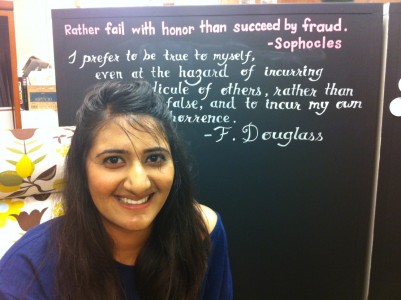 Rather fail with honor than succeed by fraud.
-Sophocles
I prefer to be true to myself,
even at the hazard of incurring
dicule of others, rather than
false, and to incur my own
horrence.
-F. Douglass